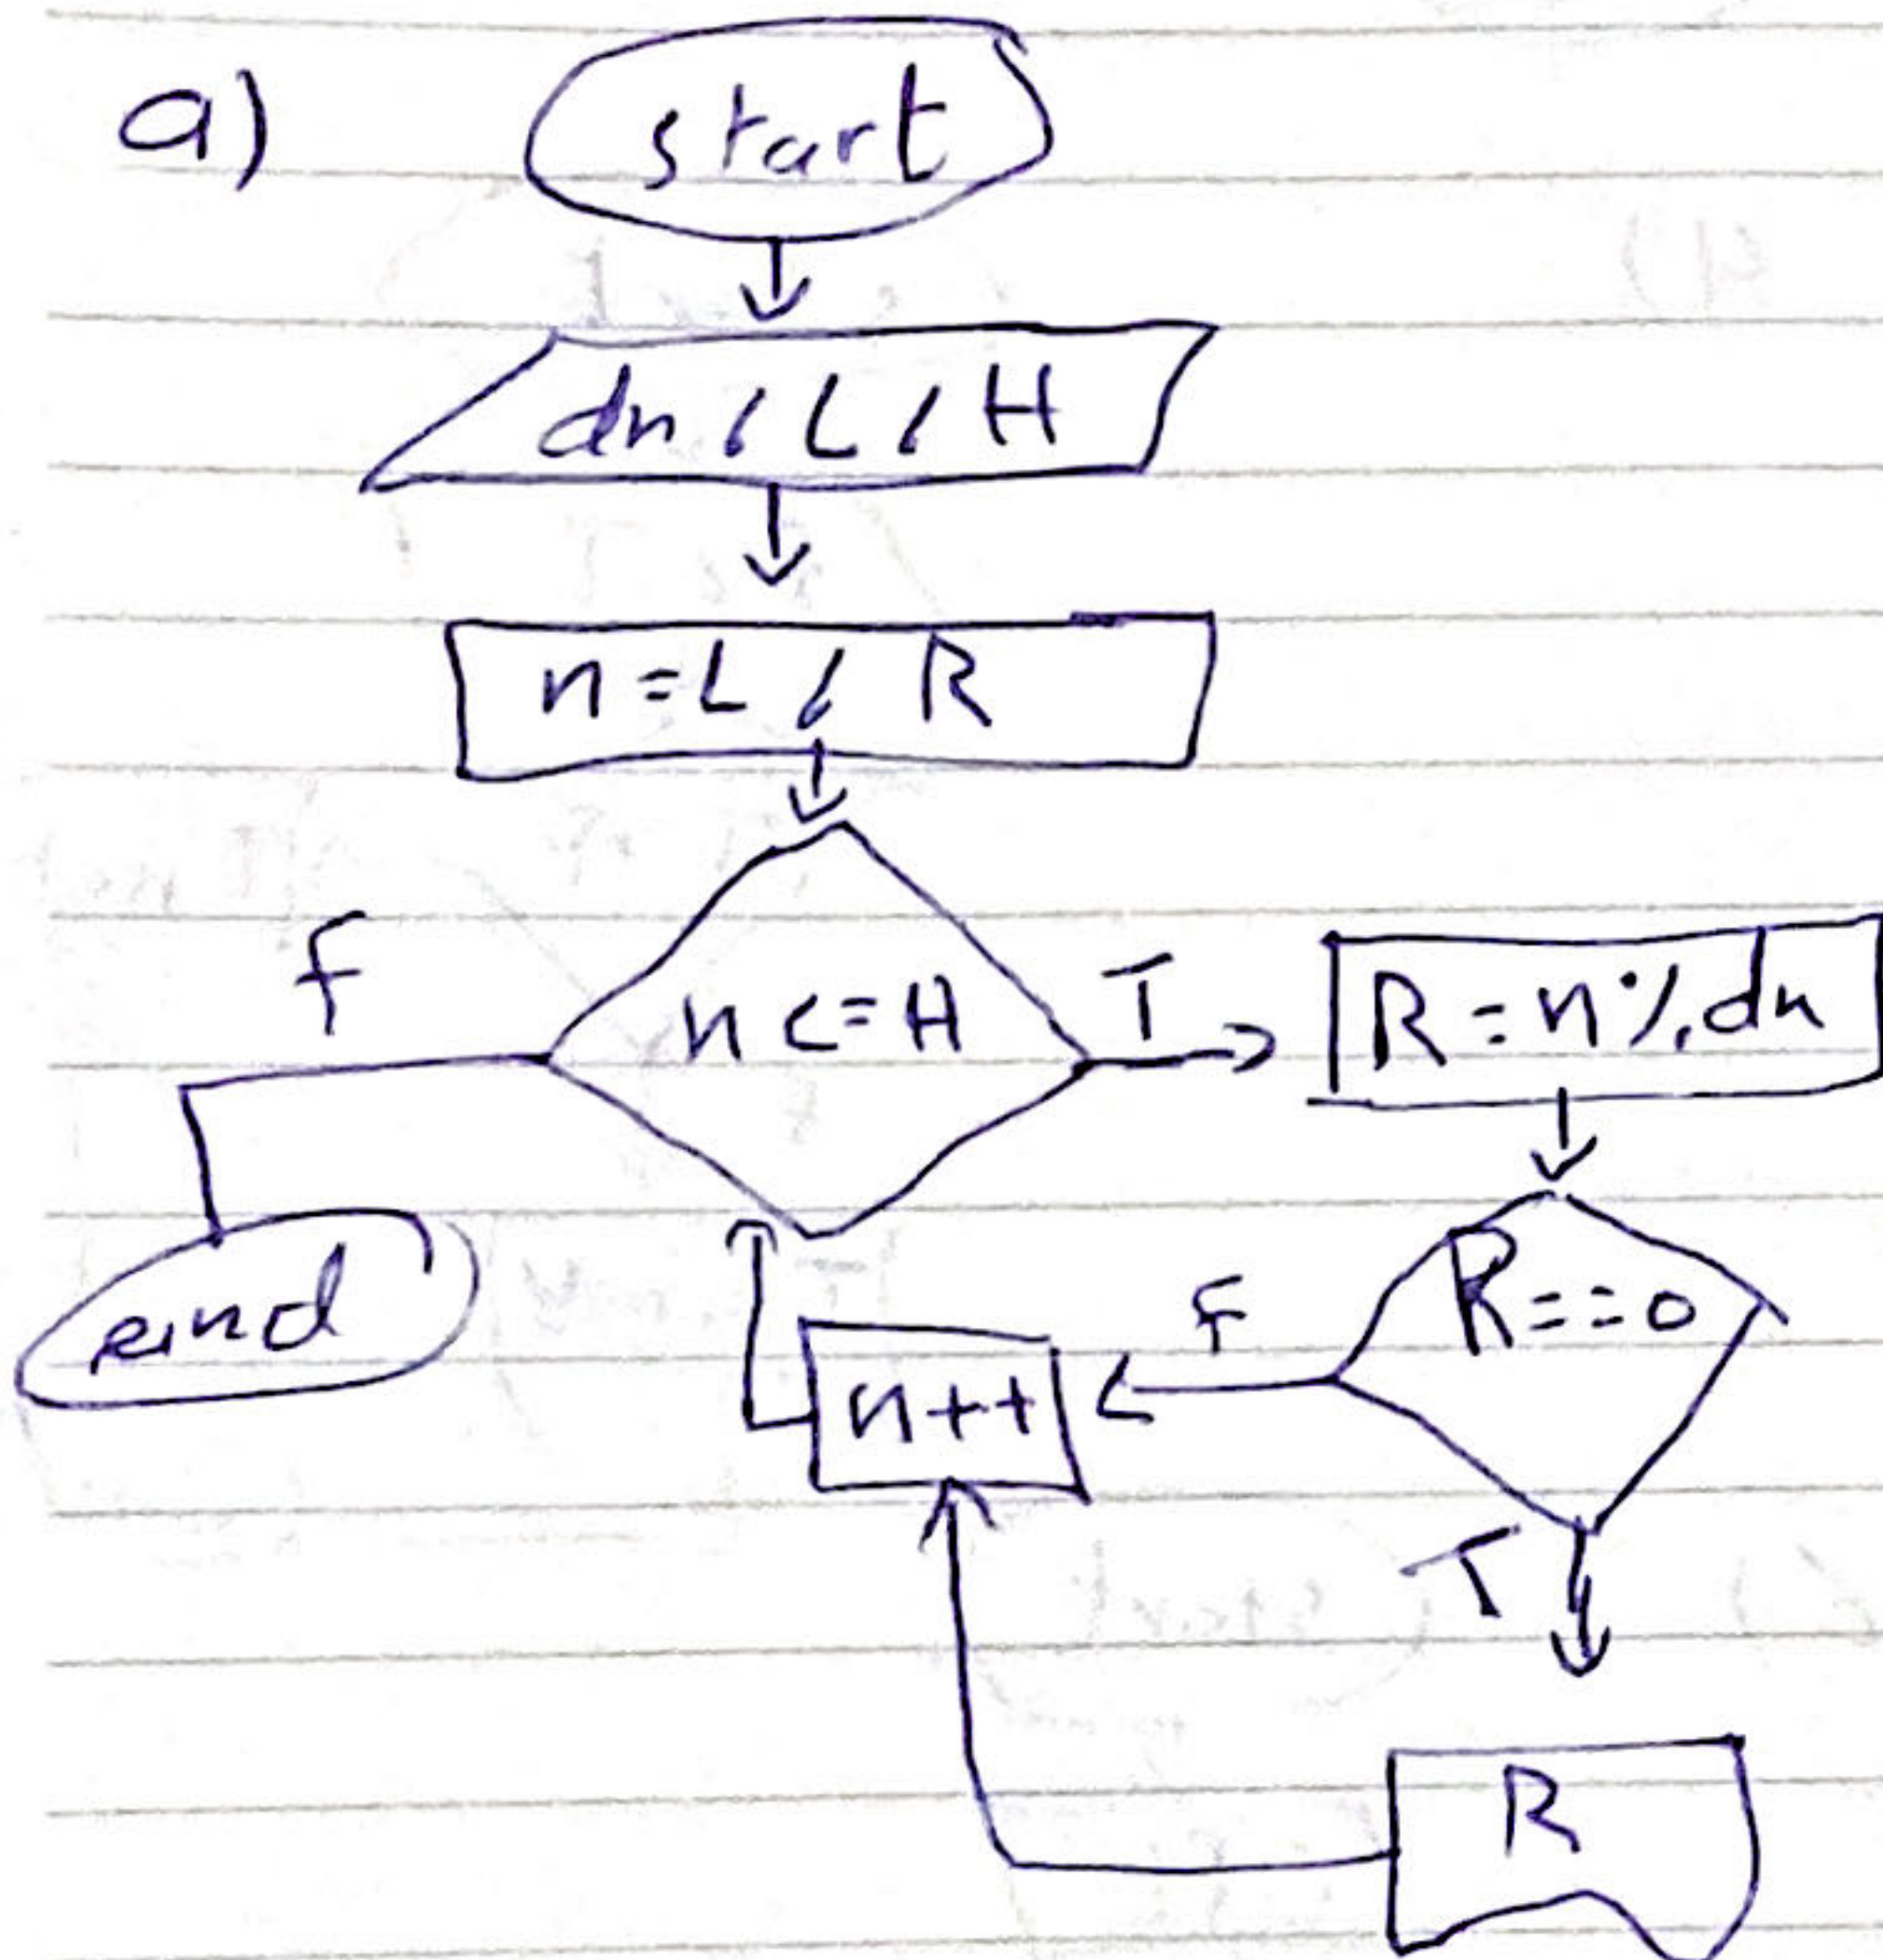 a)
start
dn , L , H
n = L , R
n <= H
F
T
R = n % dn
end
R == 0
F
n++
T
R